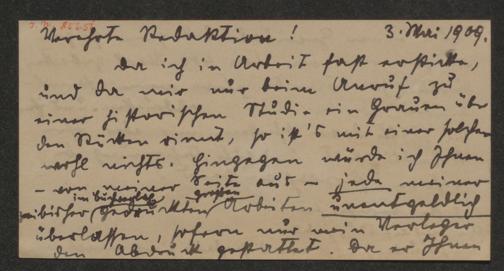 Verehrte Redaktion! 3. Mai 1909.
Da ich in Arbeit fast ersticke,
und da mir nur beim Anruf zu
einer historischen Studie ein Grauen über
den Rücken rinnt, so ist's mit einer solchen
wohl nichts. Hingegen würde ich Ihnen
– von meiner Seite aus – jede meiner
im
gedruckten Arbeiten unentgeldlich
überlassen, sofern nur mein Verleger
den Abdruck gestattet. Da er Ihnen